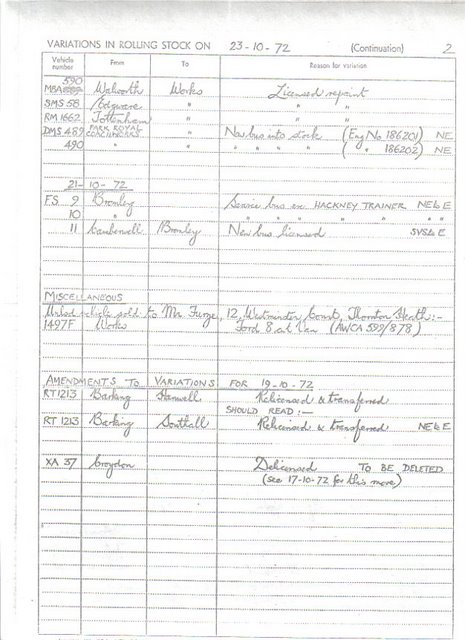 VARIATIONS IN ROLLING STOCK ON 23-10-72 (Continuation) 2
Vehicle number From To Reason for variation
590
MBA Walworth Works Licensed repaint
SMS 58 Edgware " " "
RM 1662 Tottenham " " "
DMS 489 PARK ROYAL COACHWORKS " New bus into stock (Eng No 186201) NE
490 " " " " " " ( " 186202) NE
21-10-72
FS 9 Bromley Service bus ex HACKNEY TRAINER NE & E
10 " " " " " " " "
11 Camberwell Bromley New bus licensed E
MISCELLANEOUS
vehicle sold to Mr. Furze, 12, Westminster Court, Thornton Heath:-
1497F Works Ford 8 cwt Van (AWCA 599/878)
AMENDMENTS TO VARIATIONS FOR 19-10-72
RT 1213 Barking Hanwell Relicensed & transferred
SHOULD READ:-
RT 1213 Barking Southall Relicensed & transferred NE & E
XA 37 Croydon Delicensed TO BE DELETED
(see 17-10-72 for this move)